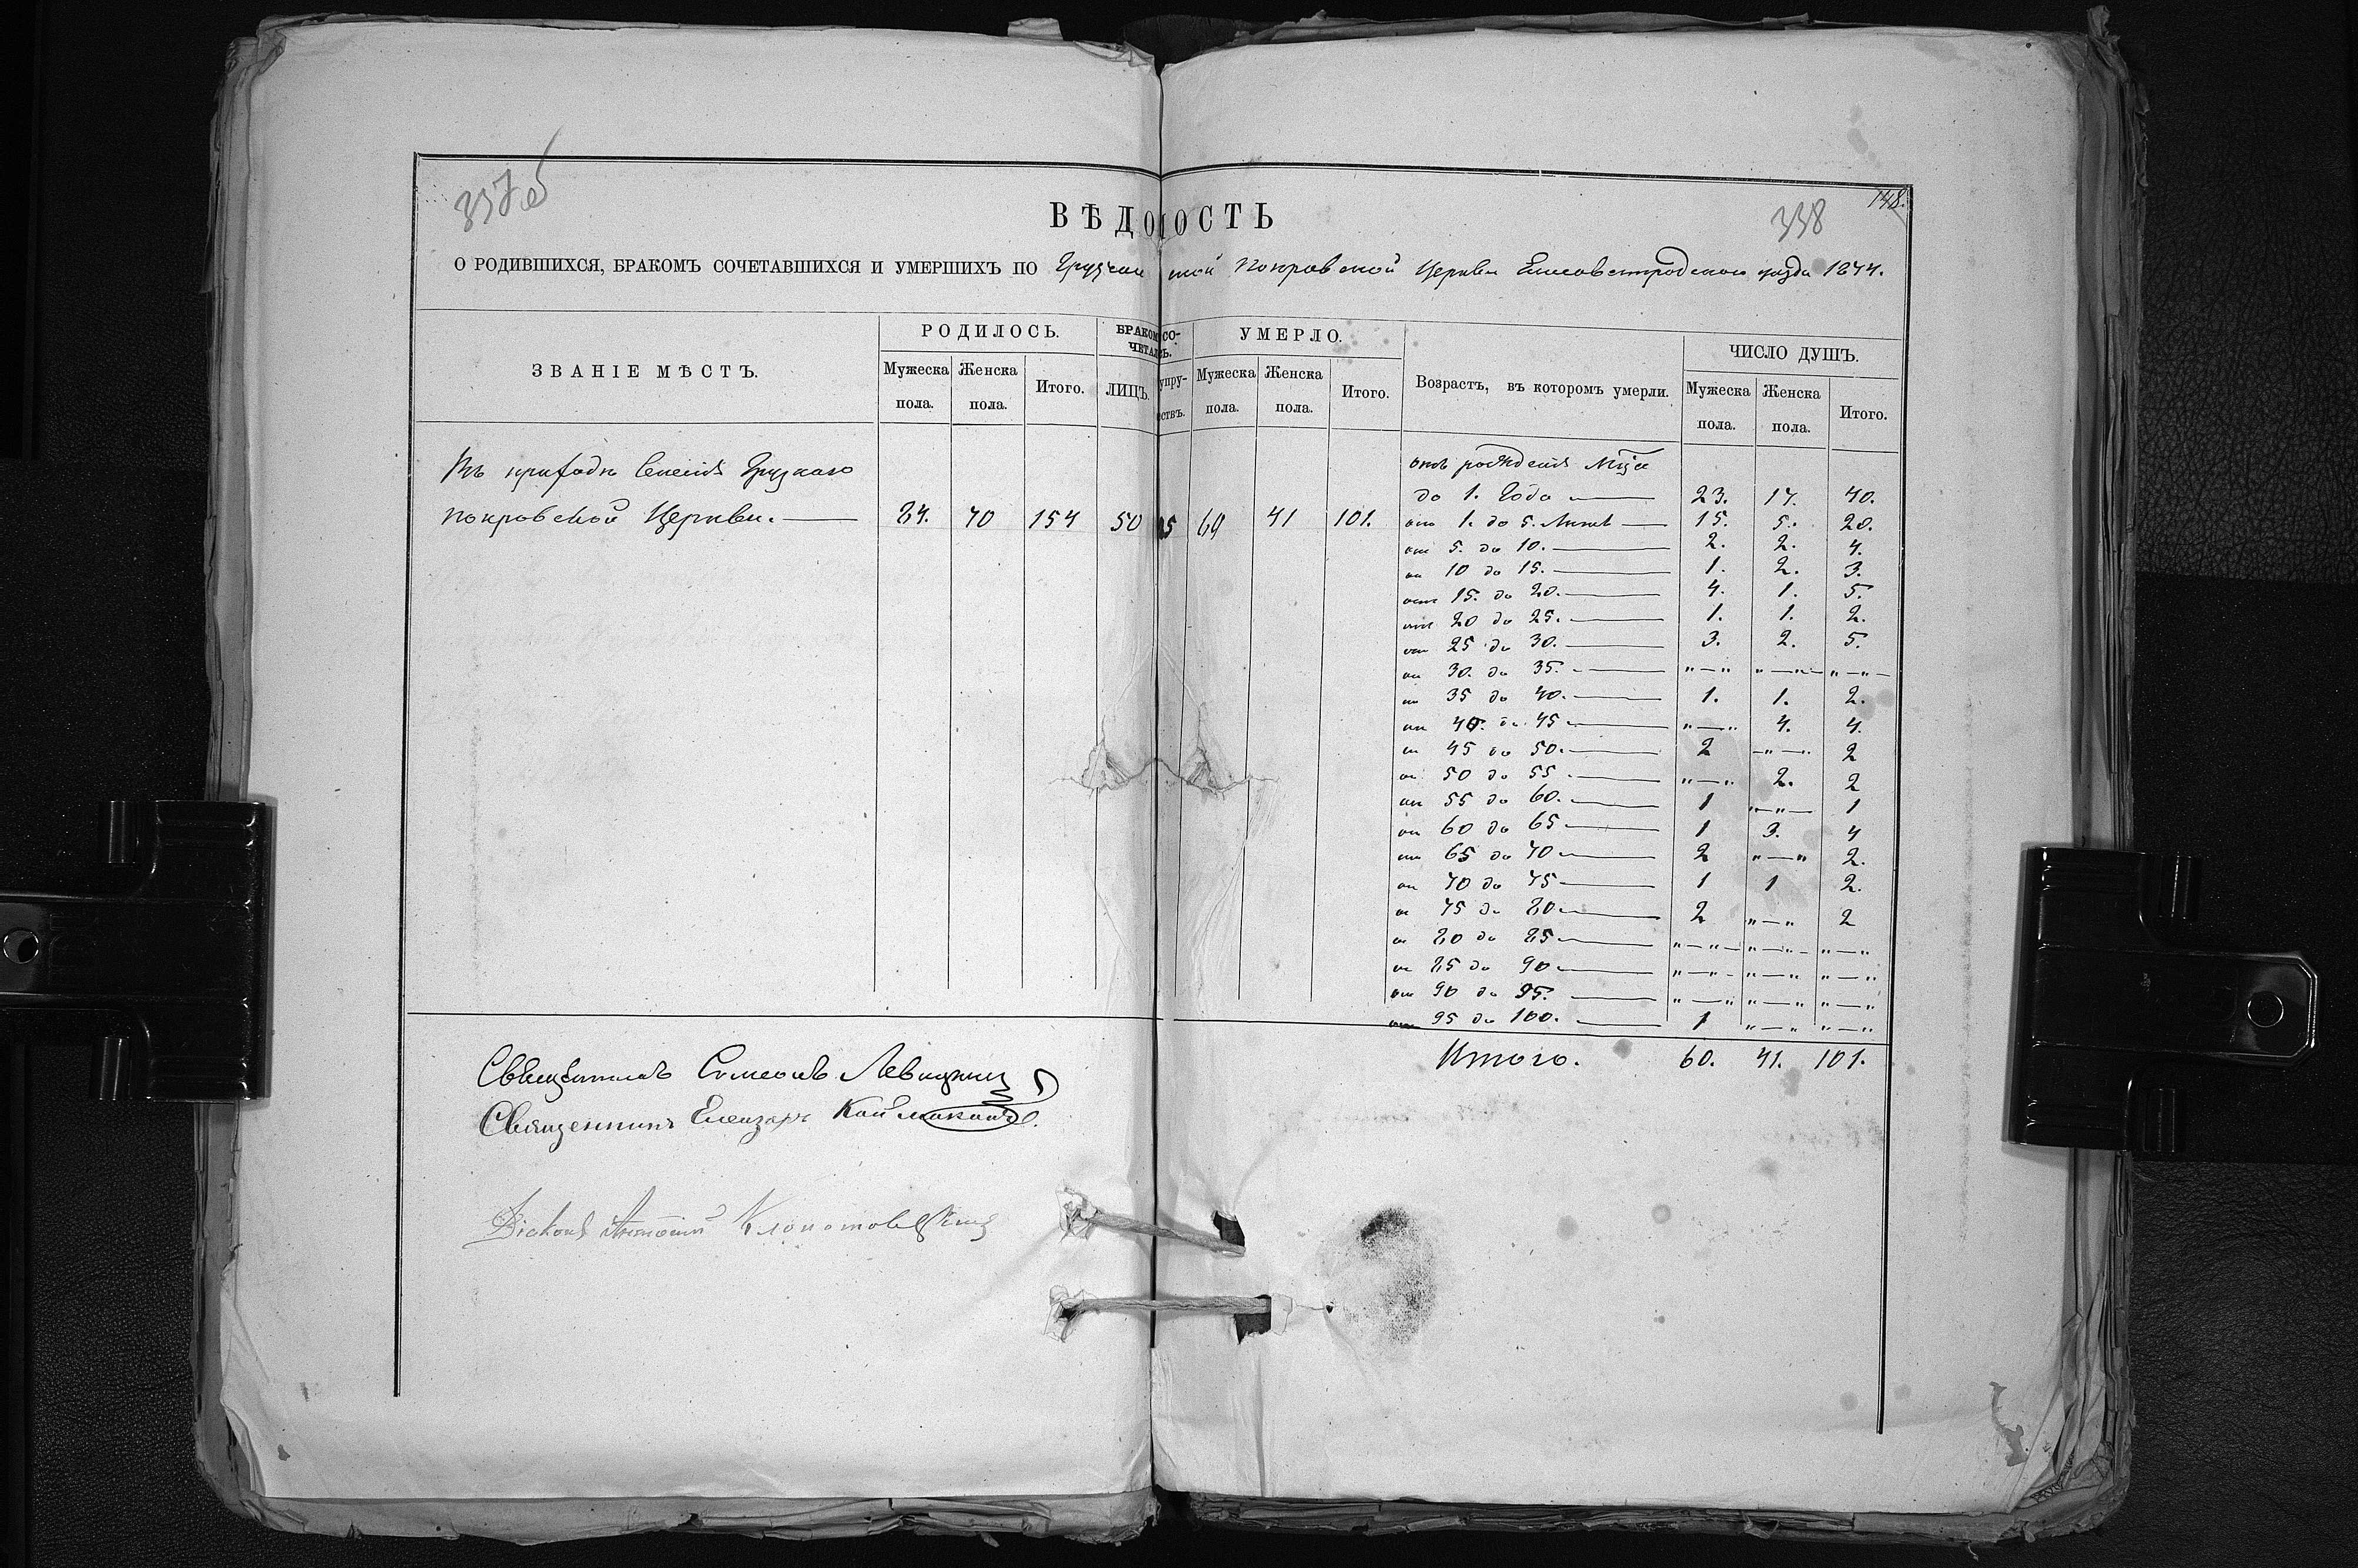 337об
148.
338
ВѢДОМОСТЬ
О РОДИВШИХСЯ, БРАКОМЪ СОЧЕТАВШИХСЯ И УМЕРШИХЪ ПО Грузчан ской Покровской Церкви Елисаветградскаго уѣзда 1877.
ЗВАНІЕ МѢСТЪ. РОДИЛОСЬ. БРАКОМЪ СО- УМЕРЛО. Возрастъ, въ которомъ умерли. ЧИСЛО ДУШЪ.
ЧЕТАЛОСЬ.
Мужеска Женска Итого. ЛИЦЪ. упру- Мужеска Женска Итого. Мужеска Женска Итого.
пола. пола. ствъ. пола. пола. пола. пола.
Въ приходѣ Селенія Грузкаго
Покровской Церкви. — 84. 70 154 50 25 60 41 101.
отъ рожденія
до 1. Года — 23. 17. 40.
отъ 1. до 5. Лѣтъ — 15. 5. 20.
от 5. до 10. — 2. 2. 4.
от 10 до 15. — 1. 2. 3.
отъ 15. до 20. — 4. 1. 5.
от 20 до 25. — 1. 1. 2.
от 25 до 30. — 3. 2. 5.
от 30. до 35. — „—„ „—„— „—„—
от 35 до 40. — 1. 1. 2.
от 40. до 45 — „—„ 4. 4.
от 45 до 50. — 2 —„—„ 2
от 50 до 55 — „—„ 2. 2
от 55 до 60. — 1 „—„— 1
от 60 до 65 — 1 3. 4
от 65 до 70 — 2 „—„ 2.
от 70 до 75 — 1 1 2.
от 75 до 80 — 2 „—„ 2
от 80 до 85 — „—„— „—„— „—„
от 85 до 90 — „—„— „—„ „—„
от 90 до 95. — „—„ „—„ „—„
от 95 до 100. — 1 „—„ „—„
Итого. 60. 41. 101.
Священникъ Симеонъ Левицкій
Священникъ Елеазаръ Каймакан
Діаконъ Антоній Клопотовскій